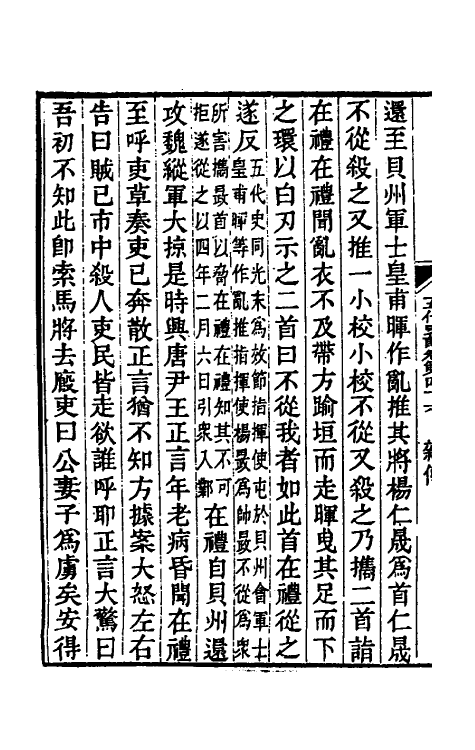 還至貝州軍士皇甫暉作亂推其將楊仁晟爲首仁晟
不從殺之又推一小校小校不從又殺之乃攜二首詣
在禮在禮聞亂衣不及帶方踰垣而走暉曳其足而下
之環以白刃示之二首曰不從我者如此首在禮從之
遂反
五代史同光末爲故節指揮使屯於貝州會軍士
皇甫暉等作亂推指揮使楊晸爲帥晸不從爲衆
所害攜晸首以脅在禮在禮知其不可
拒遂從之以四年二月六日引衆入鄴
在禮自貝州還
攻魏縱軍大掠是時興唐尹王正言年老病昏聞在禮
至呼吏草奏吏已奔散正言猶不知方據案大怒左右
告曰賊已市中殺人吏民皆走欲誰呼耶正言大驚曰
吾初不知此卽索馬將去廄吏曰公妻子爲虜矣安得